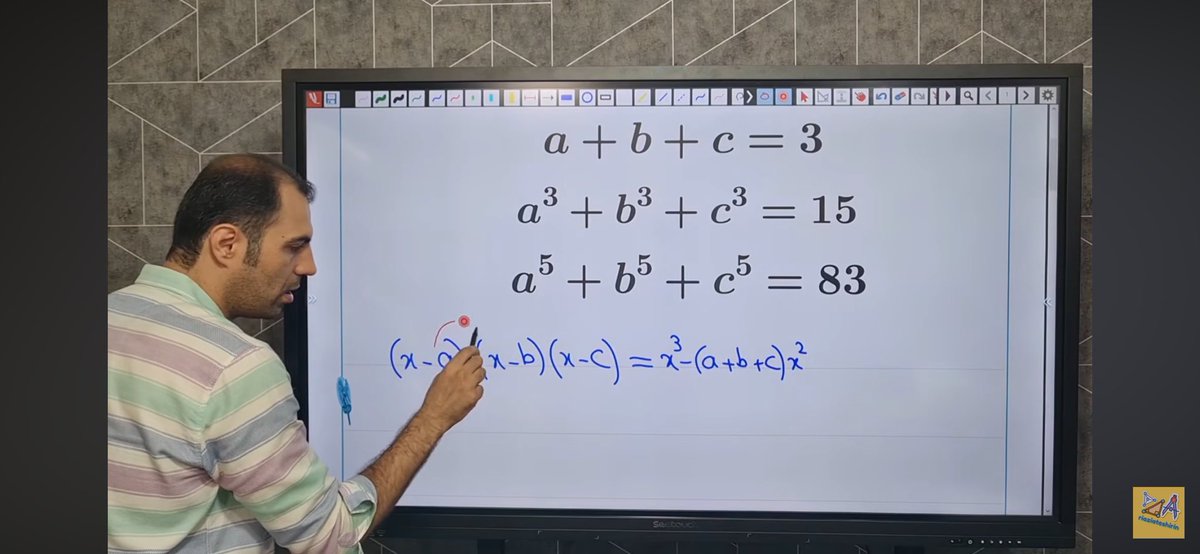 a + b + c = 3
a³ + b³ + c³ = 15
a⁵ + b⁵ + c⁵ = 83
(x-a)(x-b)(x-c) = x³-(a+b+c)x²
riaziateshirin